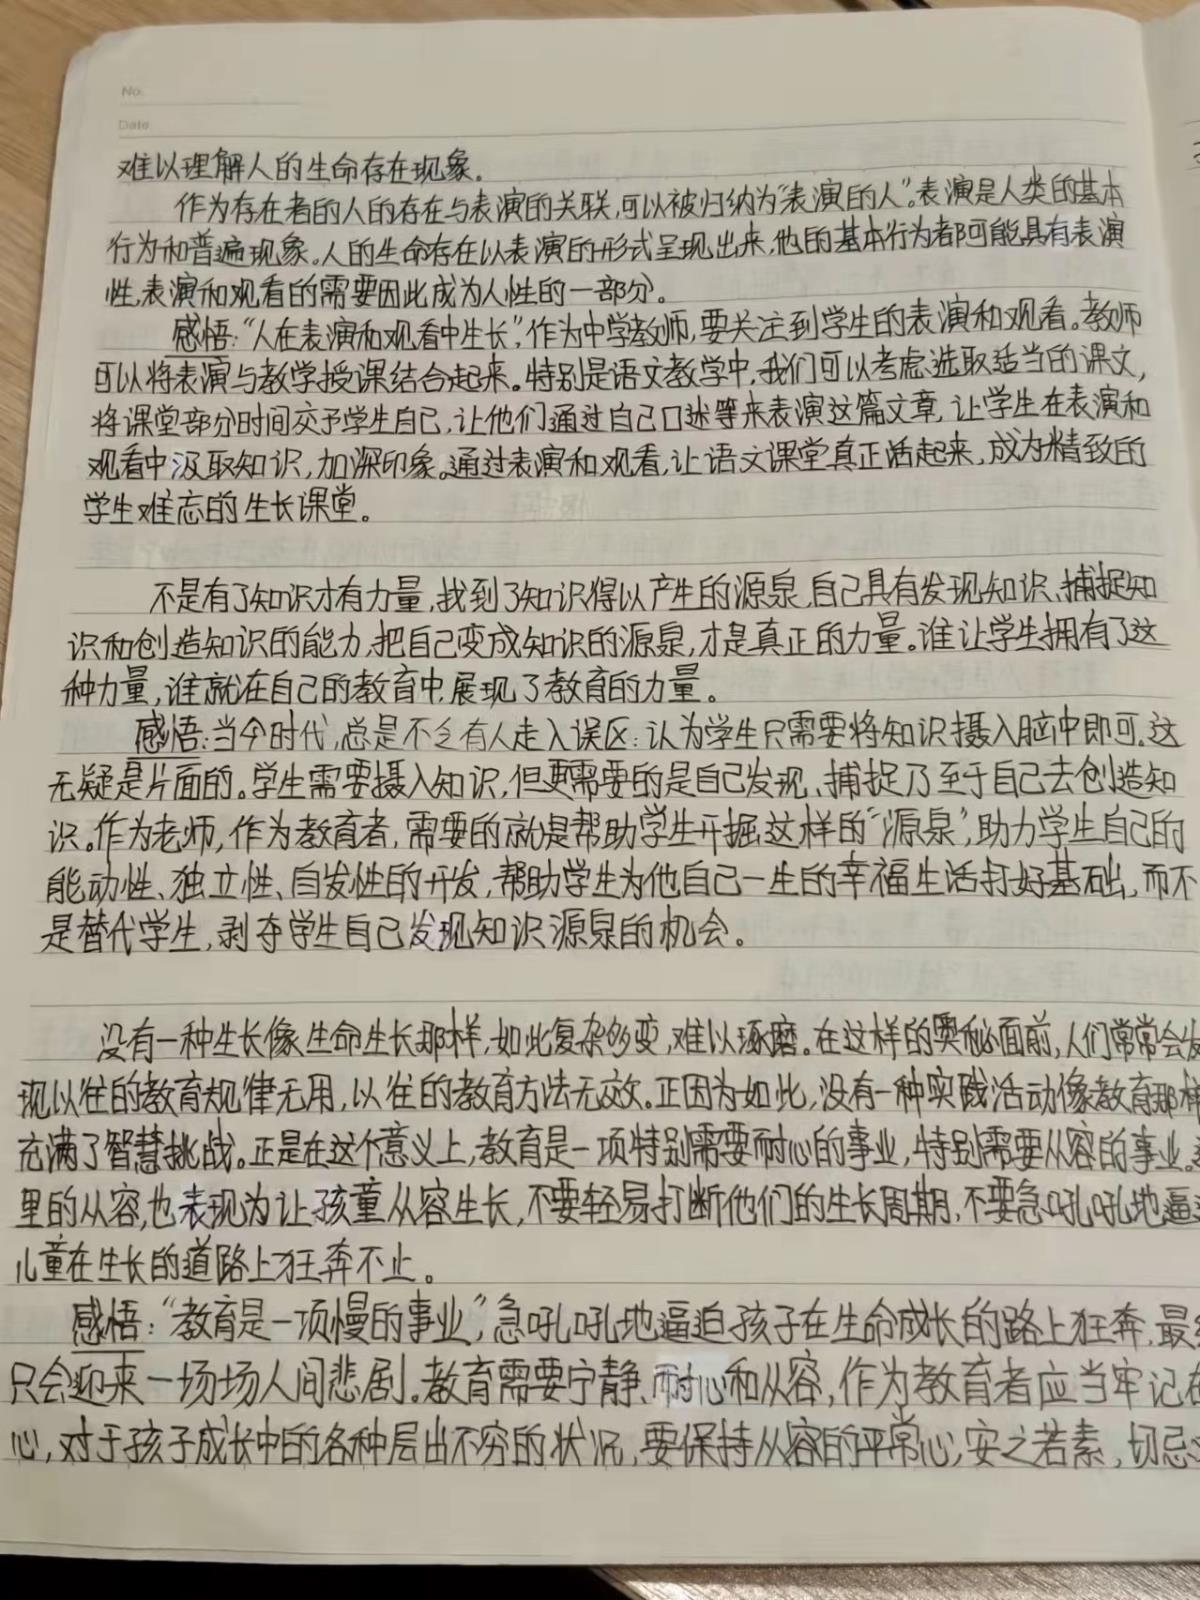 No.
Date
难以理解人的生命存在现象。
作为存在者的人的存在与表演的关联,可以被归纳为"表演的人"。表演是人类的基本
行为和普遍现象。人的生命存在以表演的形式呈现出来,他的基本行为都可能具有表演
性,表演和观看的需要因此成为人性的一部分。
感悟:"人在表演和观看中生长",作为中学教师,要关注到学生的表演和观看。教师
可以将表演与教学授课结合起来。特别是语文教学中,我们可以考虑选取适当的课文,
将课堂部分时间交予学生自己,让他们通过自己口述等来表演这篇文章,让学生在表演和
观看中汲取知识,加深印象。通过表演和观看,让语文课堂真正活起来,成为精致的
学生难忘的生长课堂。
不是有了知识才有力量,找到了知识得以产生的源泉,自己具有发现知识、捕捉知
识和创造知识的能力,把自己变成知识的源泉,才是真正的力量。谁让学生拥有了这
种力量,谁就在自己的教育中,展现了教育的力量。
感悟:当今时代,总是不乏有人走入误区:认为学生只需要将知识摄入脑中即可。这
无疑是片面的。学生需要摄入知识,但更需要的是自己发现、捕捉乃至于自己去创造知
识。作为老师,作为教育者,需要的就是帮助学生开掘这样的"源泉",助力学生自己的
能动性、独立性、自发性的开发,帮助学生为他自己一生的幸福生活打好基础,而不
是替代学生,剥夺学生自己发现知识源泉的机会。
没有一种生长像生命生长那样,如此复杂多变,难以琢磨。在这样的奥秘面前,人们常常会发
现以往的教育规律无用,以往的教育方法无效。正因为如此,没有一种实践活动像教育那样
充满了智慧挑战。正是在这个意义上,教育是一项特别需要耐心的事业,特别需要从容的事业。
里的从容,也表现为让孩童从容生长,不要轻易打断他们的生长周期,不要急吼吼地逼
儿童在生长的道路上狂奔不止。
感悟:"教育是一项慢的事业",急吼吼地逼迫孩子在生命成长的路上狂奔,最
只会迎来一场场人间悲剧。教育需要宁静、耐心和从容,作为教育者应当牢记在
心,对于孩子成长中的各种层出不穷的状况,要保持从容的平常心,安之若素,切忌